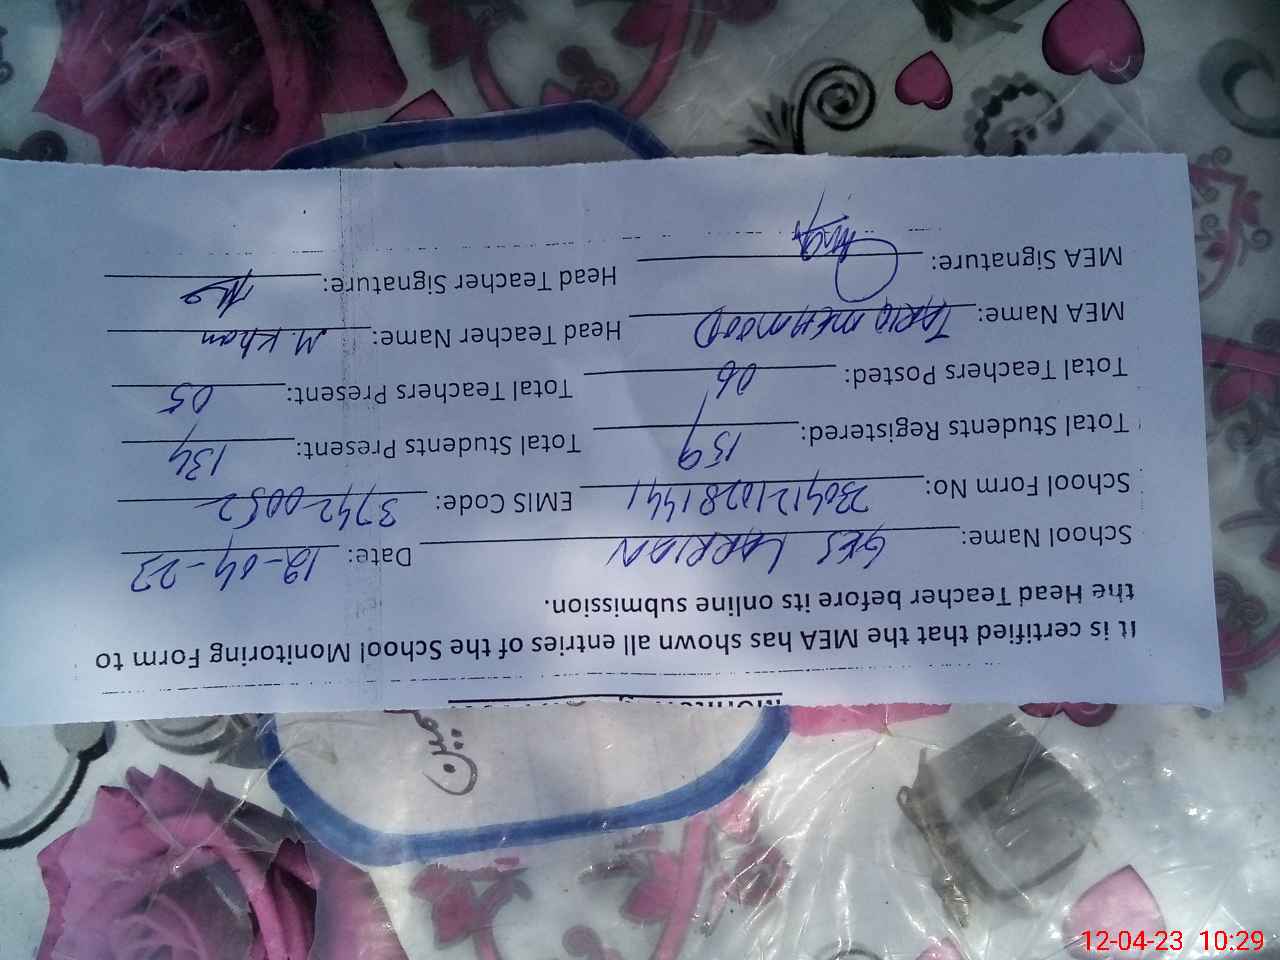 It is certified that the MEA has shown all entries of the School Monitoring Form to
the Head Teacher before its online submission.
School Name: GES LARRIAN Date: 12-04-23
School Form No: EMIS Code: 37420052
Total Students Registered: 159 Total Students Present: 134
Total Teachers Posted: 06 Total Teachers Present: 05
MEA Name: TARIQ MEHMOOD Head Teacher Name: M. Khan
MEA Signature: Head Teacher Signature:
12-04-23 10:29